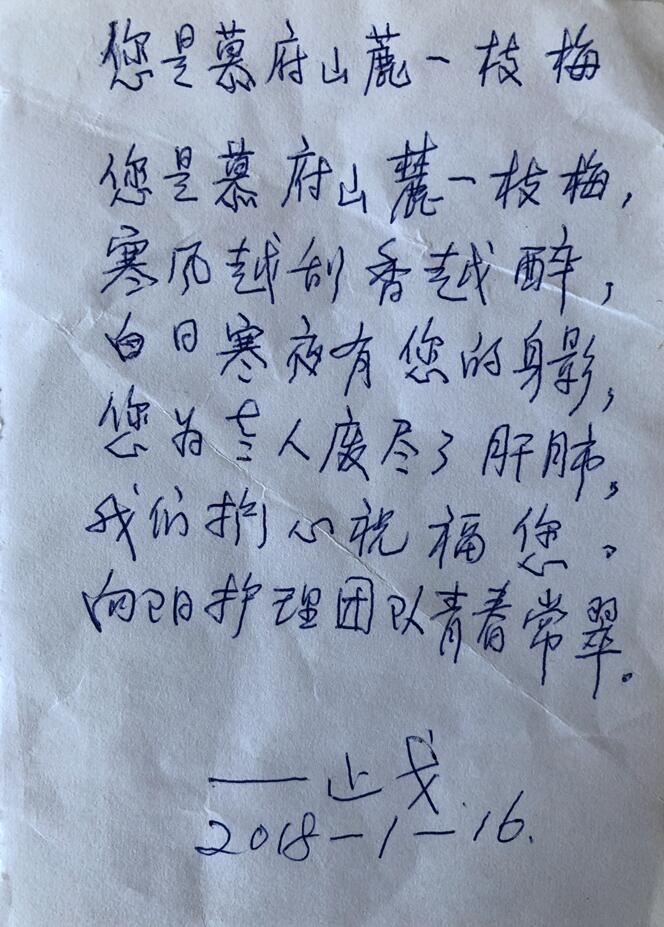 您是慕府山麓一枝梅
您是慕府山麓一枝梅，
寒风越刮香越醉，
白日寒夜有您的身影，
您为老人废尽了肝肺，
我们衷心祝福您。
向阳护理团队青春常翠。
——止戈
2018-1-16.